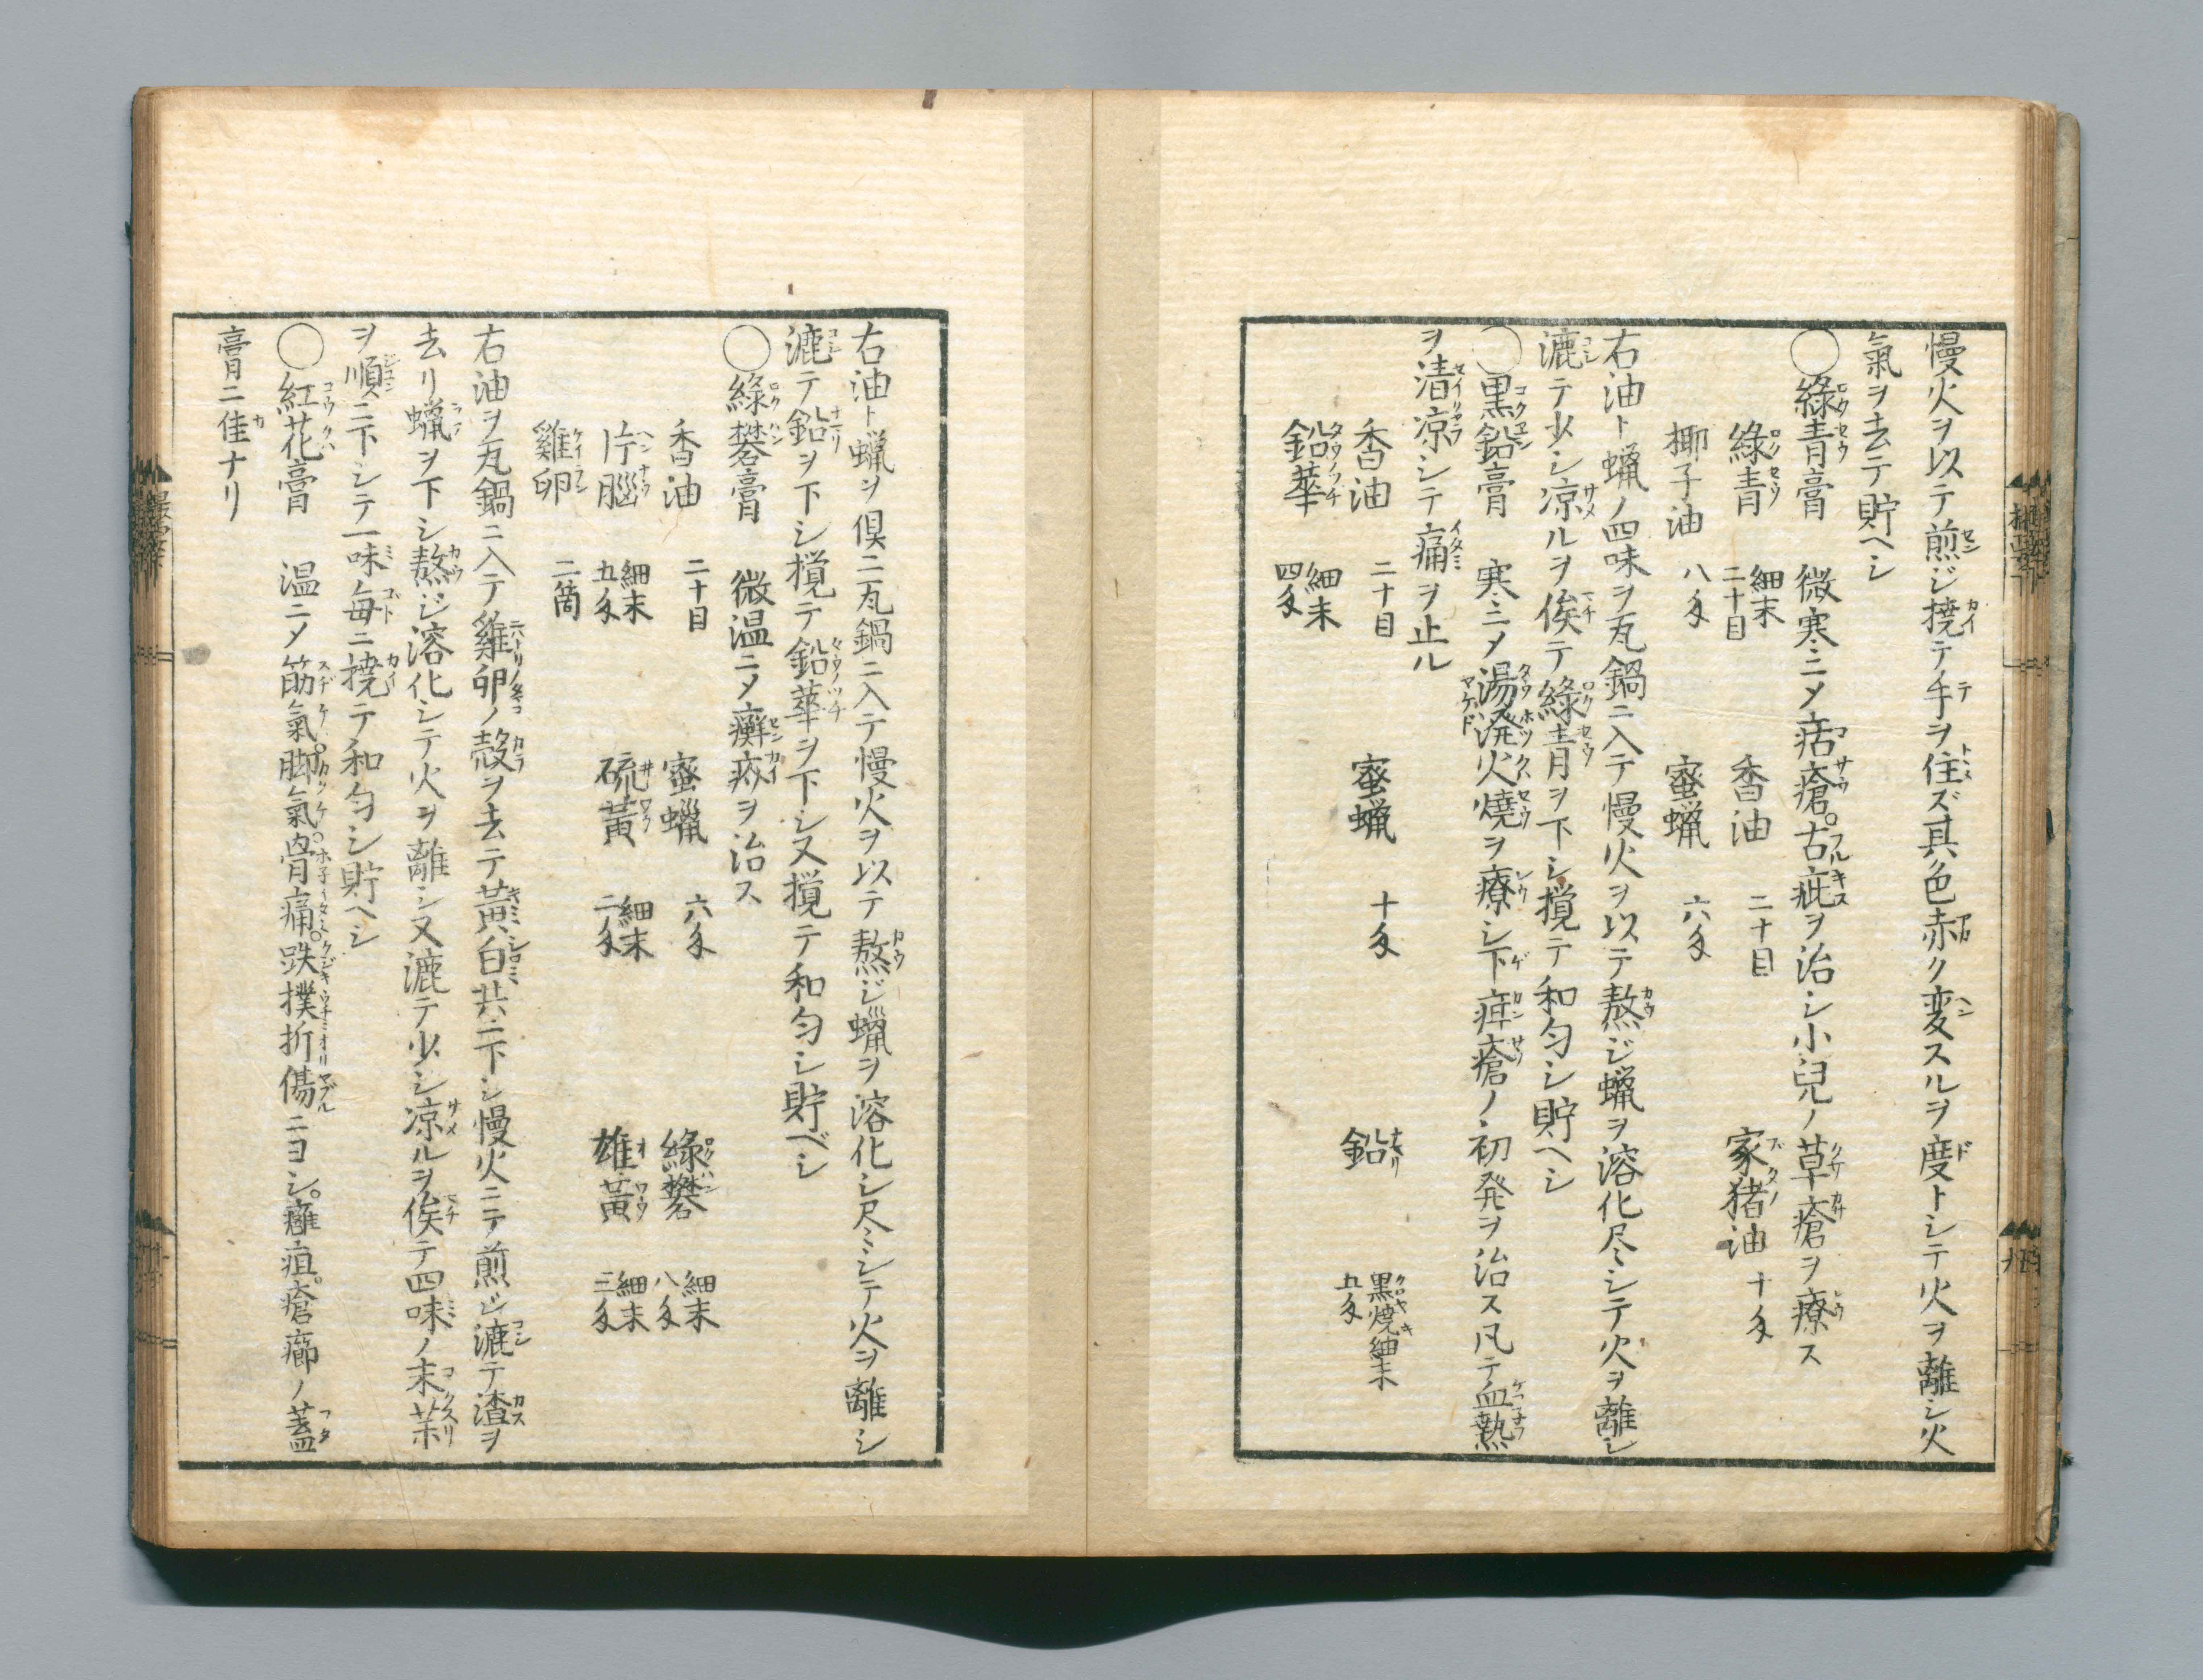 慢火ヲ以テ煎ジ撓テ手ヲ住ズ其色赤ク変スルヲ度トシテ火ヲ離シ火
氣ヲ去テ貯ヘシ
○綠青膏 微寒ニメ痁瘡。古疵ヲ治シ小兒ノ草瘡ヲ療ス
綠青 細末二十目 香油 二十目 家猪油 十匁
椰子油 八匁 蜜蝋 六匁
右油ト蝋ノ四味ヲ瓦鍋ニ入テ慢火ヲ以テ熬ジ蝋ヲ溶化尽シテ火ヲ離シ
漉テ少シ凉ルヲ俟テ綠青ヲ下シ撹テ和匀シ貯ヘシ
○黒鉛膏 寒ニメ湯溌火燒ヲ療シ下疳瘡ノ初発ヲ治ス凡テ血熱
ヲ清凉シテ痛ヲ止ル
香油 二十目 蜜蝋 十匁 鉛 黒焼細末五匁
鉛華 細末四匁
右油ト蝋ヲ倶ニ瓦鍋ニ入テ慢火ヲ以テ熬ジ蝋ヲ溶化シ尽シテ火ヲ離シ
漉テ鉛ヲ下シ撹テ鉛華ヲ下シ又撹テ和匀シ貯ベシ
○綠礬膏 微温ニメ癬疥ヲ治ス
香油 二十目 蜜蝋 六匁 綠礬 細末八匁
片腦 細末五匁 硫黃 細末二匁 雄黃 細末三匁
雞卵 二箇
右油ヲ瓦鍋ニ入テ雞卵ノ殻ヲ去テ黃白共ニ下シ慢火ニテ煎ジ漉テ渣ヲ
去リ蝋ヲ下シ熬ジ溶化シテ火ヲ離シ又漉テ少シ凉ルヲ俟テ四味ノ末茉
ヲ順ニ下シテ一味毎ニ撓テ和匀シ貯ヘシ
○紅花膏 温ニメ筋氣。脚氣。骨痛。跌撲折傷ニヨシ。癰疽。瘡癤ノ蓋
膏ニ佳ナリ